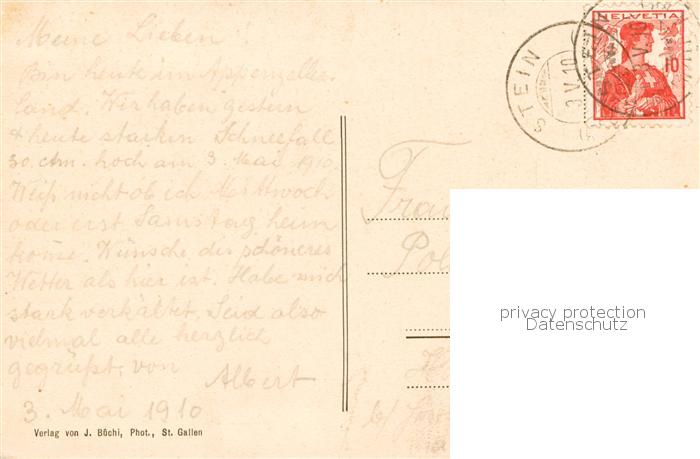 Meine Lieben!
Bin heute im Appenzeller-
land. Wir haben gestern
& heute starken Schneefall
30 ctm. hoch am 3. Mai 1910.
Weiß nicht ob ich Mittwoch
oder erst Samstag heim
kome. Wünsche dir schöneres
Wetter als hier ist. Habe mich
stark verkältet. Seid also
vielmal alle herzlich
gegrüßt, von
Albert
3. Mai 1910
Verlag von J. Büchi, Phot., St. Gallen
HELVETIA
10
STEIN
3 V. 10
Frau
privacy protection
Datenschutz